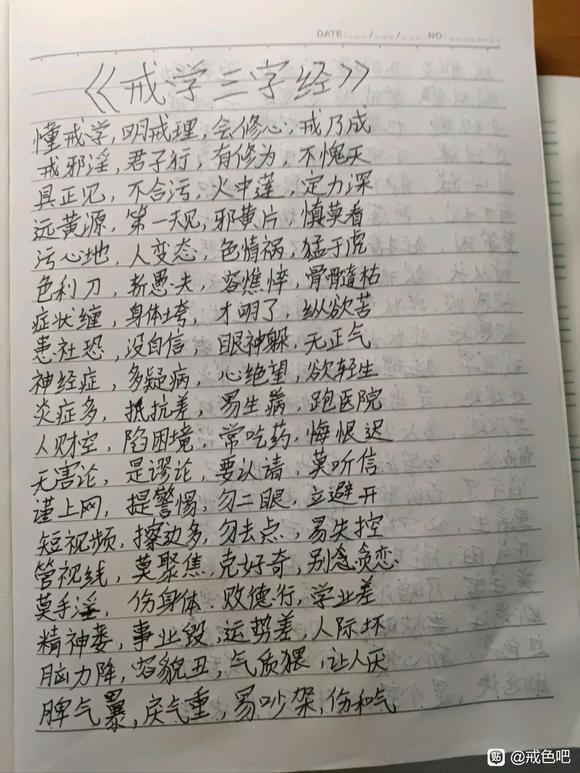 DATE: ___/___/___ NO: ______
《戒学三字经》
懂戒学，明戒理，会修心，戒乃成
戒邪淫，君子行，有修为，不愧天
具正见，不合污，火中莲，定力深
远黄源，第一规，邪黄片，慎莫看
污心地，人变态，色情祸，猛于虎
色利刀，斩愚夫，容憔悴，骨髓枯
症状缠，身体垮，才明了，纵欲苦
患社恐，没自信，眼神躲，无正气
神经症，多疑病，心绝望，欲轻生
炎症多，抵抗差，易生病，跑医院
人财空，陷困境，常吃药，悔恨迟
无害论，是谬论，要认清，莫听信
谨上网，提警惕，勿二眼，立避开
短视频，擦边多，勿去点，易失控
管视线，莫聚焦，克好奇，别贪恋
莫手淫，伤身体，败德行，学业差
精神萎，事业毁，运势差，人际坏
脑力降，容貌丑，气质猥，让人厌
脾气暴，戾气重，易吵架，伤和气
贴 @戒色吧